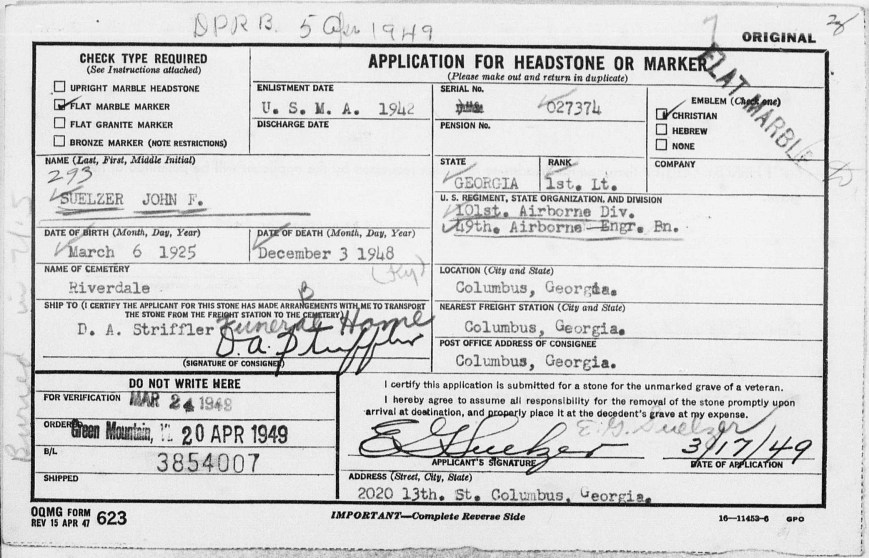 DPRB. 5 Apr 1949
ORIGINAL
FLAT MARBLE
CHECK TYPE REQUIRED
(See Instructions attached)
UPRIGHT MARBLE HEADSTONE
FLAT MARBLE MARKER
FLAT GRANITE MARKER
BRONZE MARKER (NOTE RESTRICTIONS)
APPLICATION FOR HEADSTONE OR MARKER
(Please make out and return in duplicate)
ENLISTMENT DATE
U. S. M. A. 1942
DISCHARGE DATE
SERIAL No.
027374
PENSION No.
EMBLEM (Check one)
CHRISTIAN
HEBREW
NONE
NAME (Last, First, Middle Initial)
293
SUELZER JOHN F.
STATE
GEORGIA
RANK
1st. Lt.
COMPANY
U. S. REGIMENT, STATE ORGANIZATION, AND DIVISION
101st. Airborne Div.
49th. Airborne Engr. Bn.
DATE OF BIRTH (Month, Day, Year)
March 6 1925
DATE OF DEATH (Month, Day, Year)
December 3 1948
(Ky)
NAME OF CEMETERY
Riverdale
LOCATION (City and State)
Columbus, Georgia.
SHIP TO (I CERTIFY THE APPLICANT FOR THIS STONE HAS MADE ARRANGEMENTS WITH ME TO TRANSPORT
THE STONE FROM THE FREIGHT STATION TO THE CEMETERY)
D. A. Striffler Funeral Home
D. A. Striffler
(SIGNATURE OF CONSIGNEE)
NEAREST FREIGHT STATION (City and State)
Columbus, Georgia.
POST OFFICE ADDRESS OF CONSIGNEE
Columbus, Georgia.
DO NOT WRITE HERE
FOR VERIFICATION MAR 24 1949
ORDERED Green Mountain, 20 APR 1949
B/L
3854007
SHIPPED
I certify this application is submitted for a stone for the unmarked grave of a veteran.
I hereby agree to assume all responsibility for the removal of the stone promptly upon
arrival at destination, and properly place it at the decedent's grave at my expense.
E. G. Suelzer
E G Suelzer 3/17/49
APPLICANT'S SIGNATURE
DATE OF APPLICATION
ADDRESS (Street, City, State)
2020 13th. St. Columbus, Georgia.
OQMG FORM
REV 15 APR 47 623
IMPORTANT—Complete Reverse Side
16—11453-6 GPO
Buried in